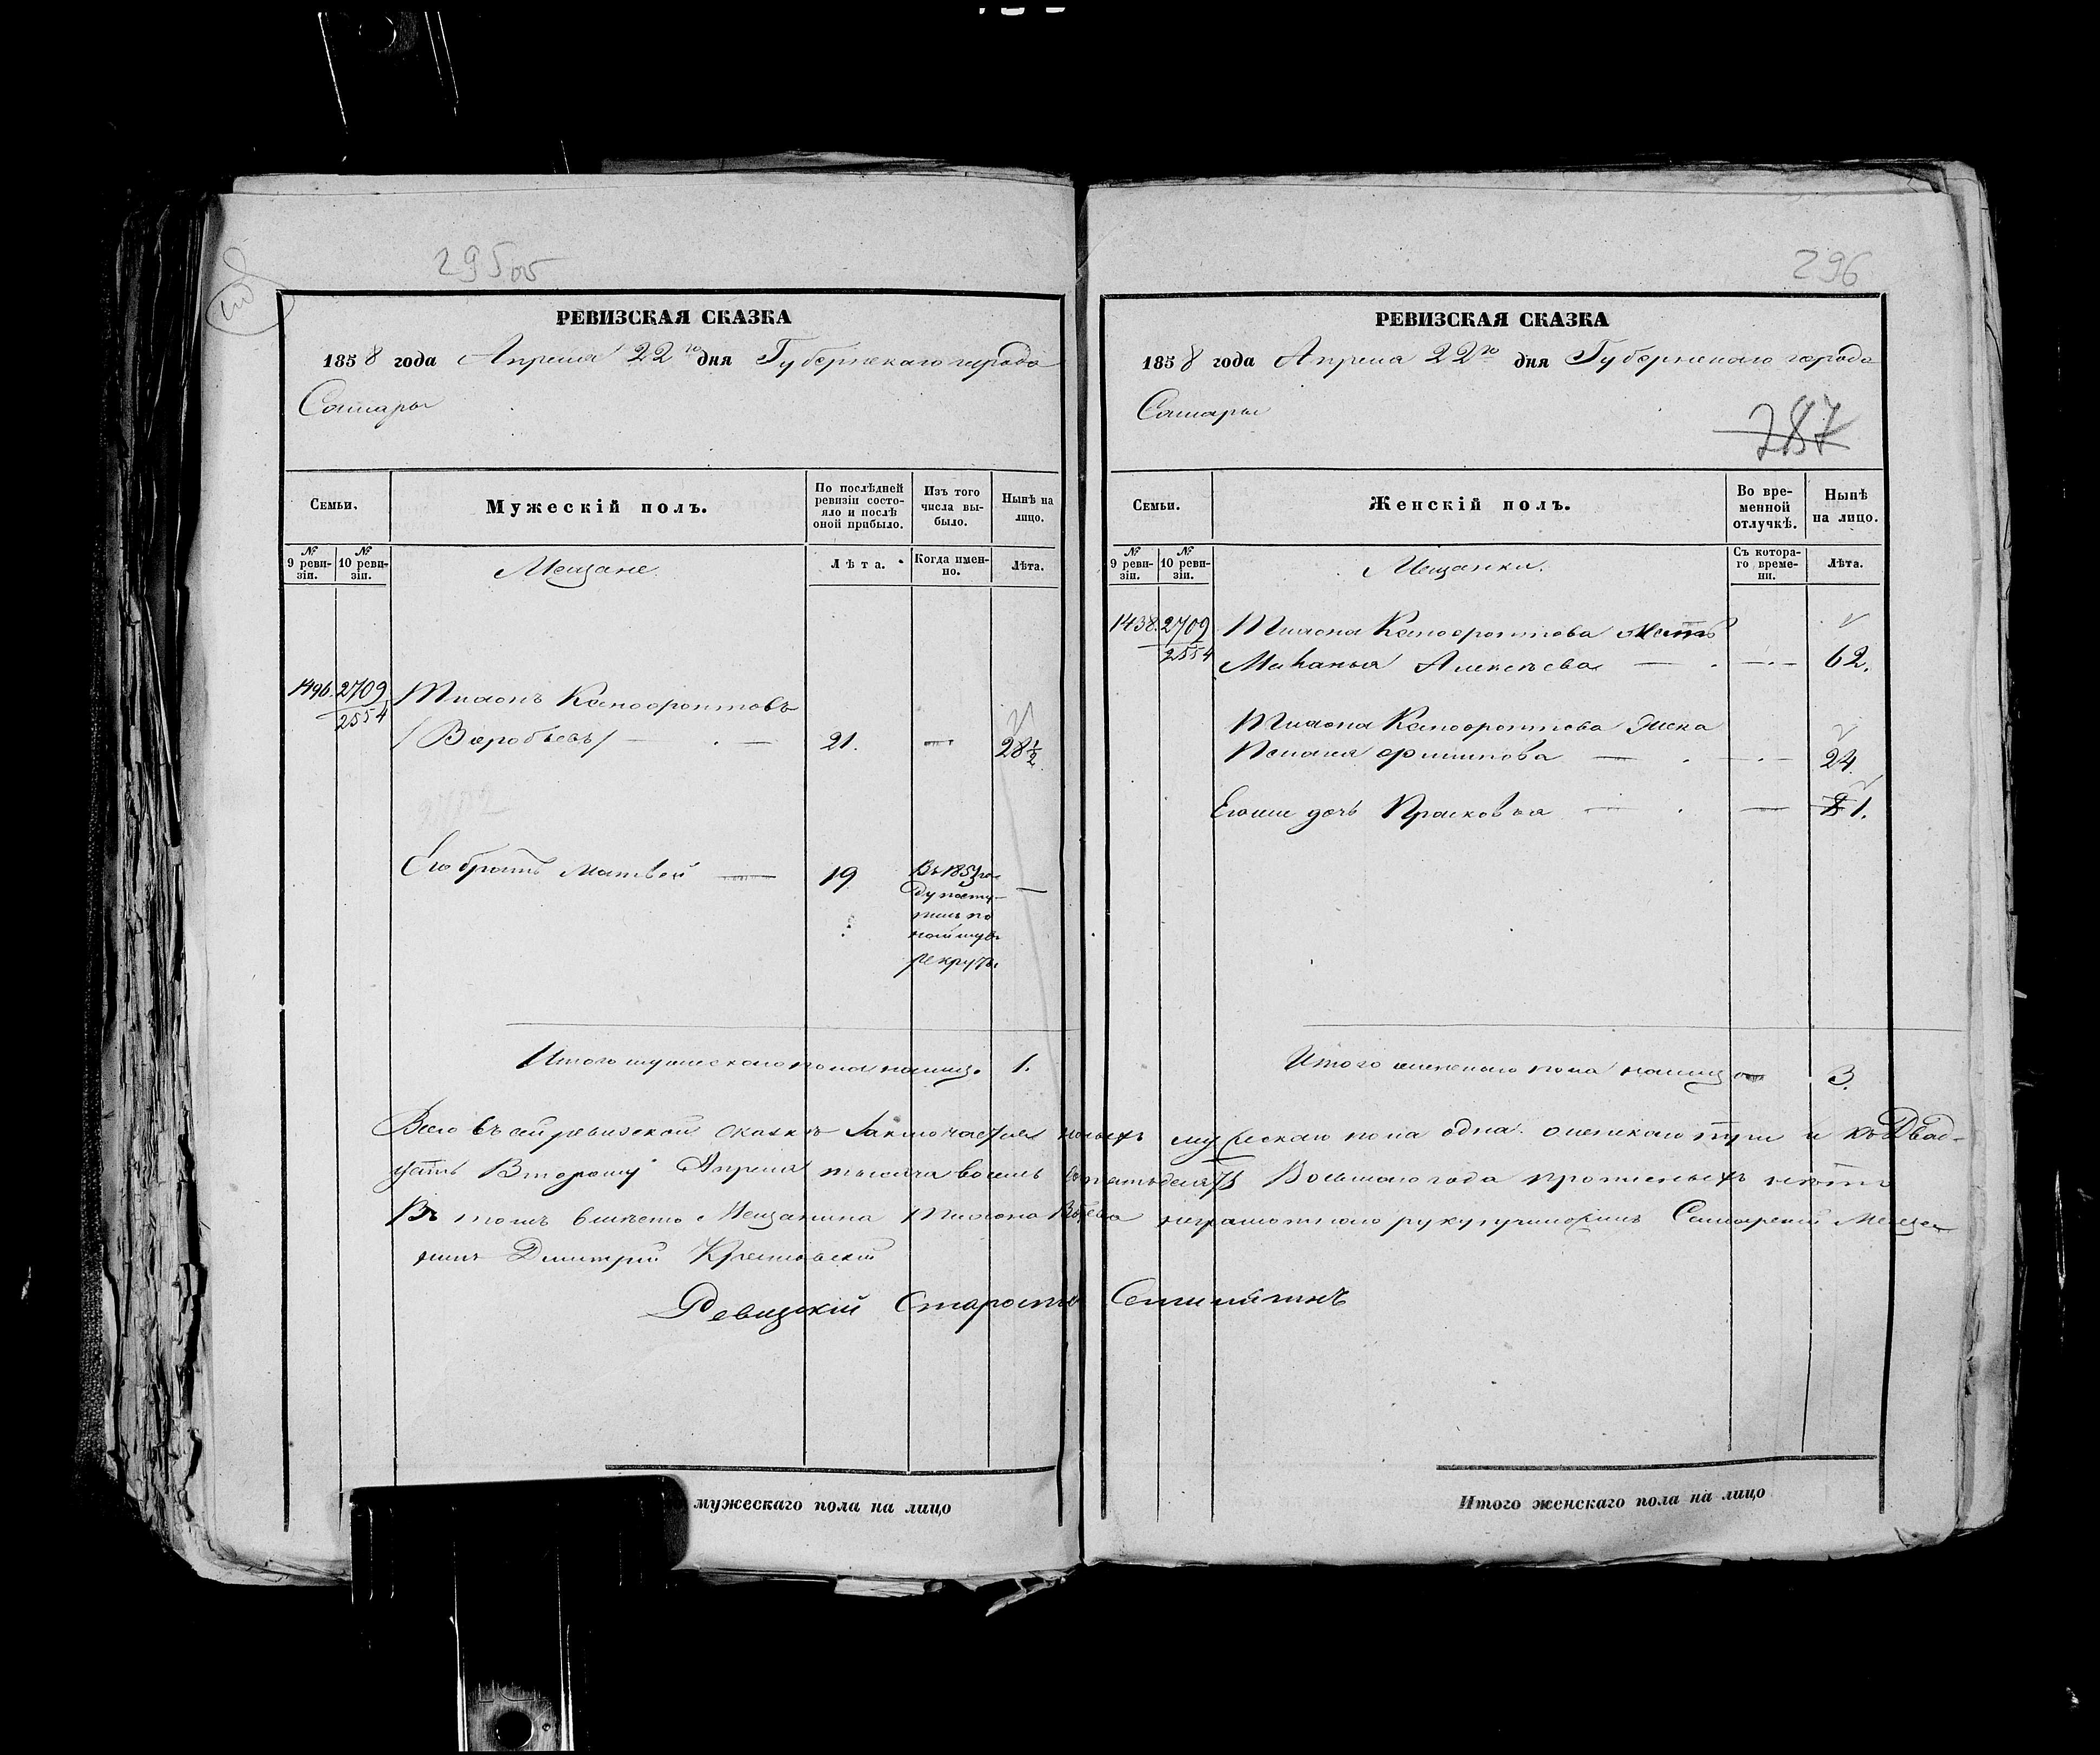 295об
РЕВИЗСКАЯ СКАЗКА
1858 года Апреля 22го дня Губернскаго города
Самары
Семьи.
Мужескій полъ.
По послѣдней ревизіи состояло и послѣ оной прибыло.
Изъ того числа выбыло.
Нынѣ на лицо.
№ 9 ревизіи.
№ 10 ревизіи.
Мещане.
Лѣта.
Когда именно.
Лѣта.
1496. 2709
2554
Ксенофонтовъ
/Воробьевъ/ — 21. — 28½
Его братъ Матвей — 19 Въ 185 го-
ду посту-
пилъ по
найму въ
рекруты. —
Итого мужескаго пола налиц. 1.
мужескаго пола на лицо
296
РЕВИЗСКАЯ СКАЗКА
1858 года Апреля 22го дня Губернскаго города
Самары
287
Семьи.
Женскій полъ.
Во временной отлучкѣ.
Нынѣ на лицо.
№ 9 ревизіи.
№ 10 ревизіи.
Мещанки.
Съ котораго времени.
Лѣта.
1438. 2709
2554
Ксенофонтова Мать
Алексѣева — — 62.
Ксенофонтова Жена
— — 24.
Прасковья — — 1.
Итого женскаго пола налицо 3.
Всего въ сей ревизской сказкѣ заключается мужескаго пола одна. женскаго три и къ Двад-
цать Второму Апреля тысяча восемь сотъ пятьдесятъ Восьмаго года прописныхъ нѣтъ
Въ томъ вмѣсто Мещанина неграмотнаго руку приложилъ Самарской Меща
нинъ Дмитрій
Ревизскій Староста
Итого женскаго пола на лицо